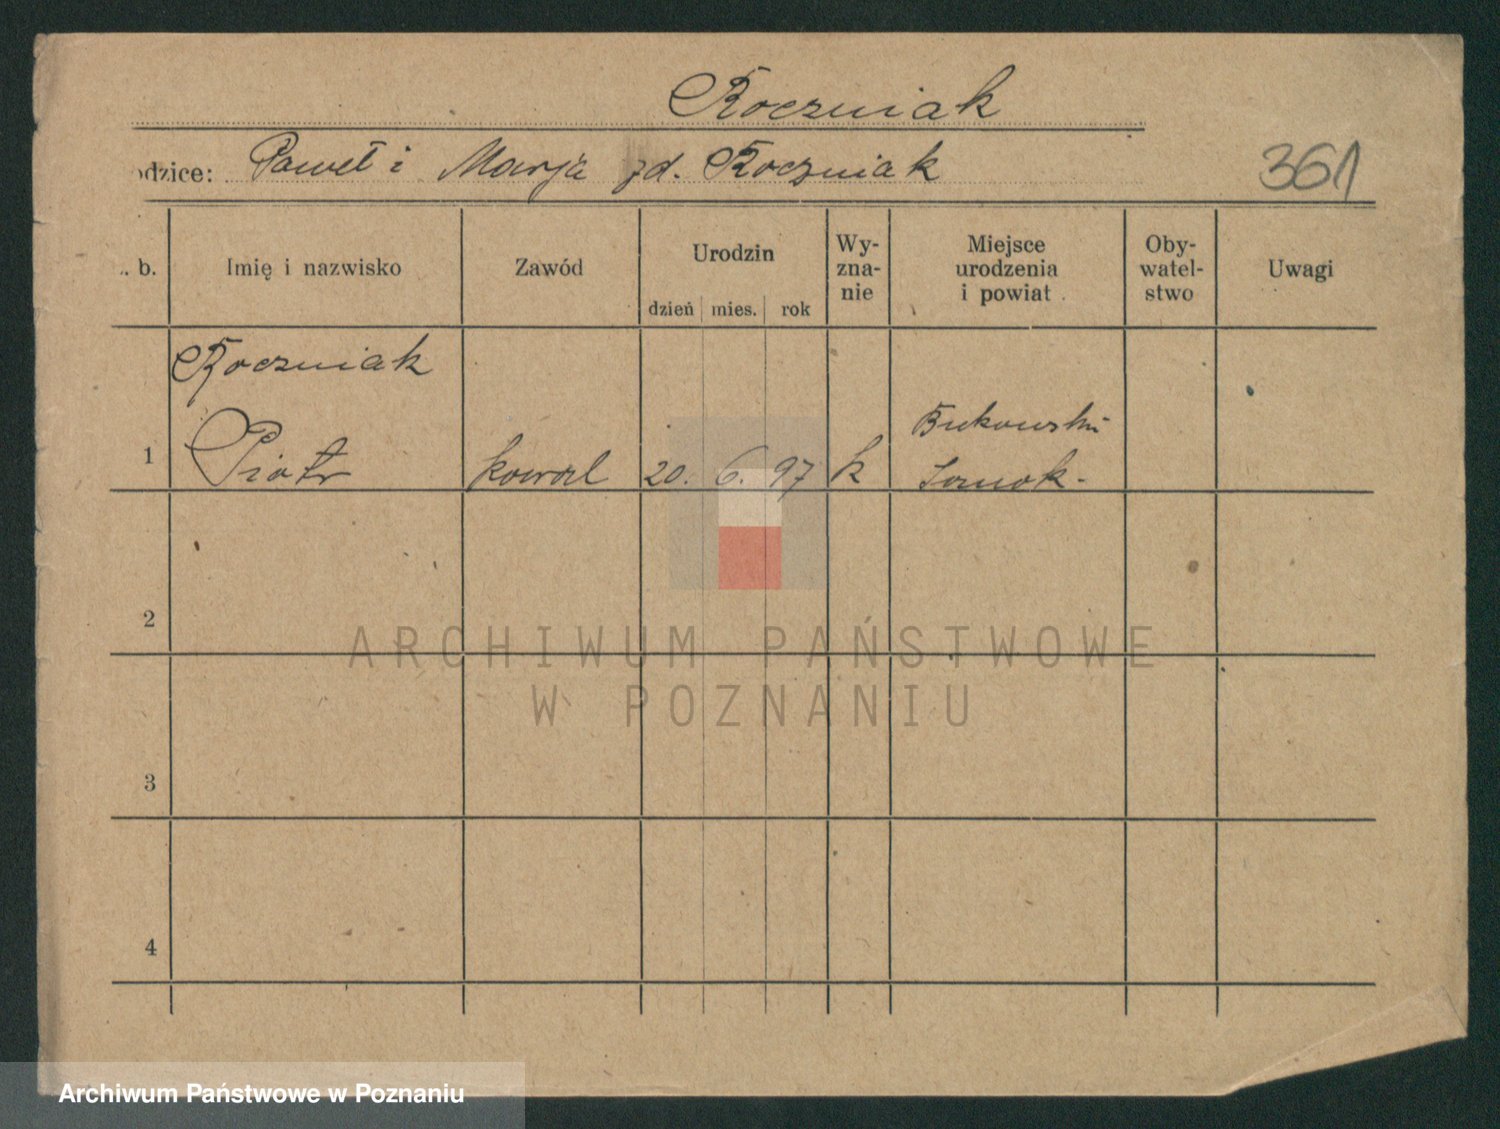 Roczniak
odzice: Paweł i Marja zd. Roczniak
361
. b.
Imię i nazwisko
Zawód
Urodzin
dzień mies. rok
Wy-
zna-
nie
Miejsce
urodzenia
i powiat
Oby-
watel-
stwo
Uwagi
Roczniak
1 Piotr kowal 20. 6. 97 k
Bukowsko
Sanok.
2
3
4
ARCHIWUM PAŃSTWOWE
W POZNANIU
Archiwum Państwowe w Poznaniu